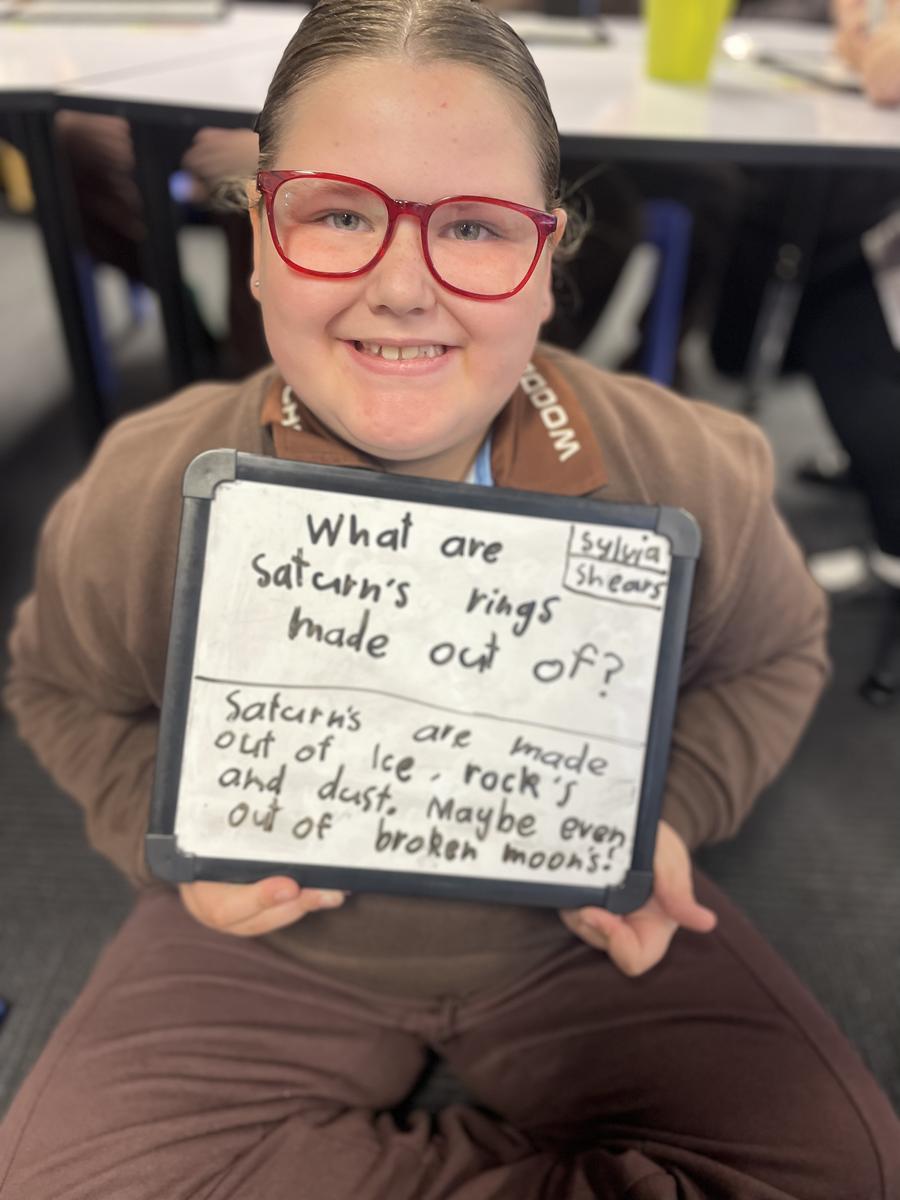 WOODY
CH
What are
Saturn's rings
made out of?
Sylvia
Shears
Saturn's are made
out of Ice, rock's
and dust. Maybe even
out of broken moon's!